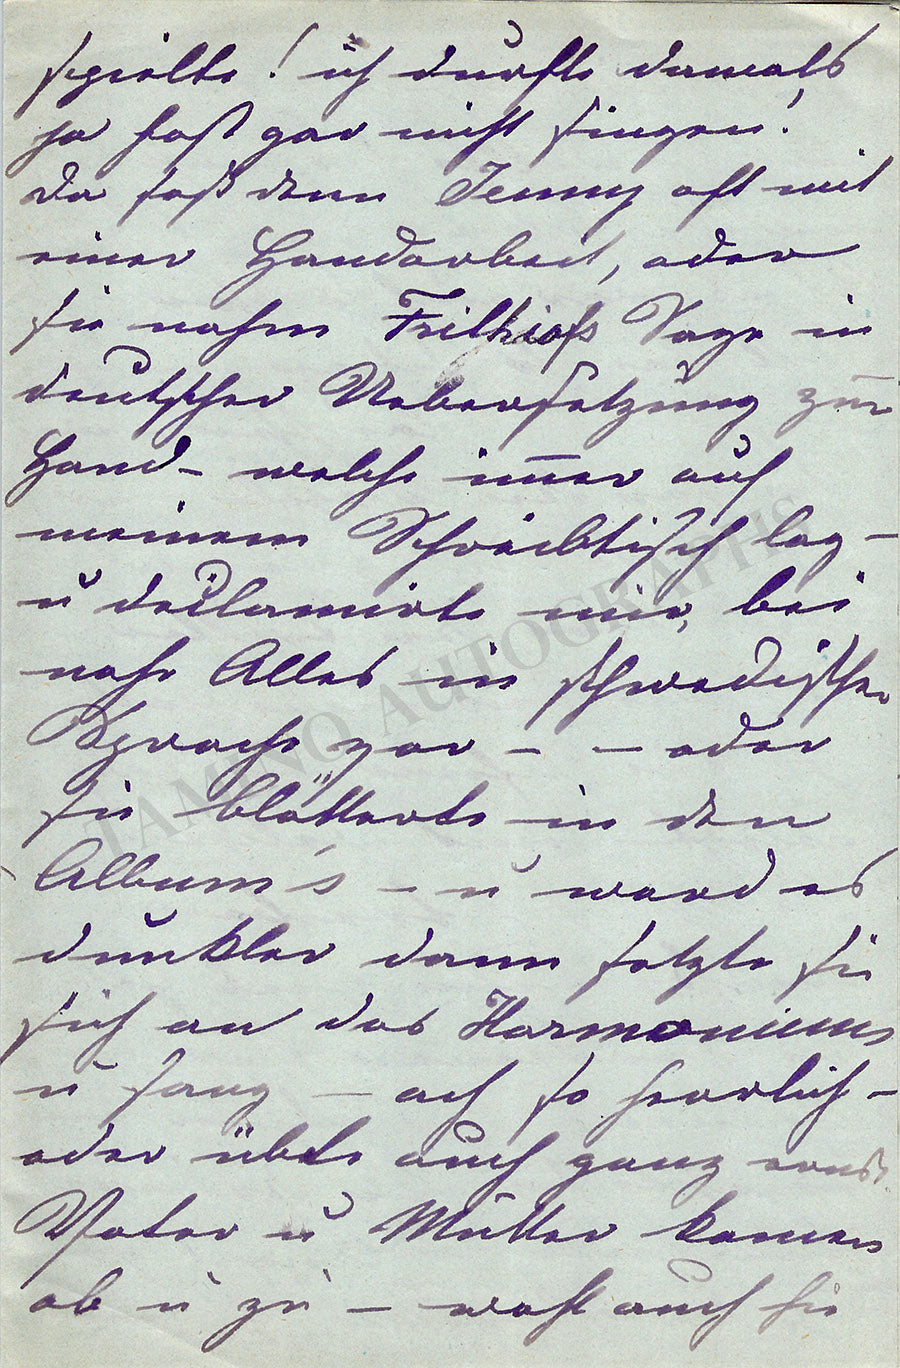 spielte! ich durfte damals
ja fast gar nicht singen!
Da saß denn Jenny oft mit
einer Handarbeit, oder
sie nahm Frithiofs Sage in
deutscher Uebersetzung zur
Hand – welche im̅er auf
meinem Schreibtisch lag –
u declamirte mir, bei
nahe Alles in schwedischer
Sprache vor – – oder
sie blätterte in den
Album's – u ward es
dunkler dann setzte sie
sich an das Harmonium
u sang – ach so herrlich –
oder übte auch ganz ernst.
Vater u Mutter kamen
ab u zu – wohl auch sie
TAMINO AUTOGRAPHS